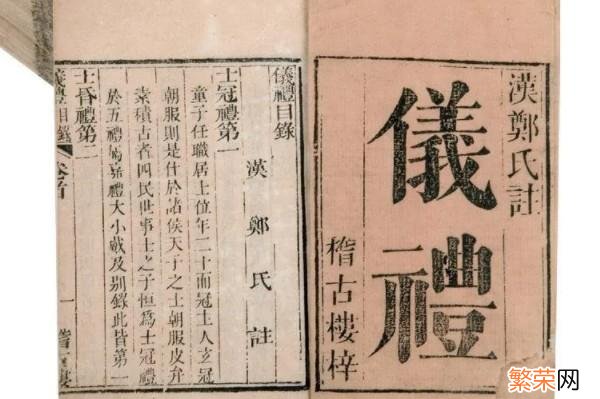 漢鄭氏註
儀禮
稽古樓梓
儀禮目錄
漢鄭氏註
士冠禮第一
童子任職居士位年二十而冠主人玄冠
朝服則是仕於諸侯天子之士朝服皮弁
素積古者四民世事士之子恒為士冠禮
於五禮屬嘉禮大小戴及別錄此皆第一
士昏禮第二
儀禮目錄 卷首 一
繁荣网